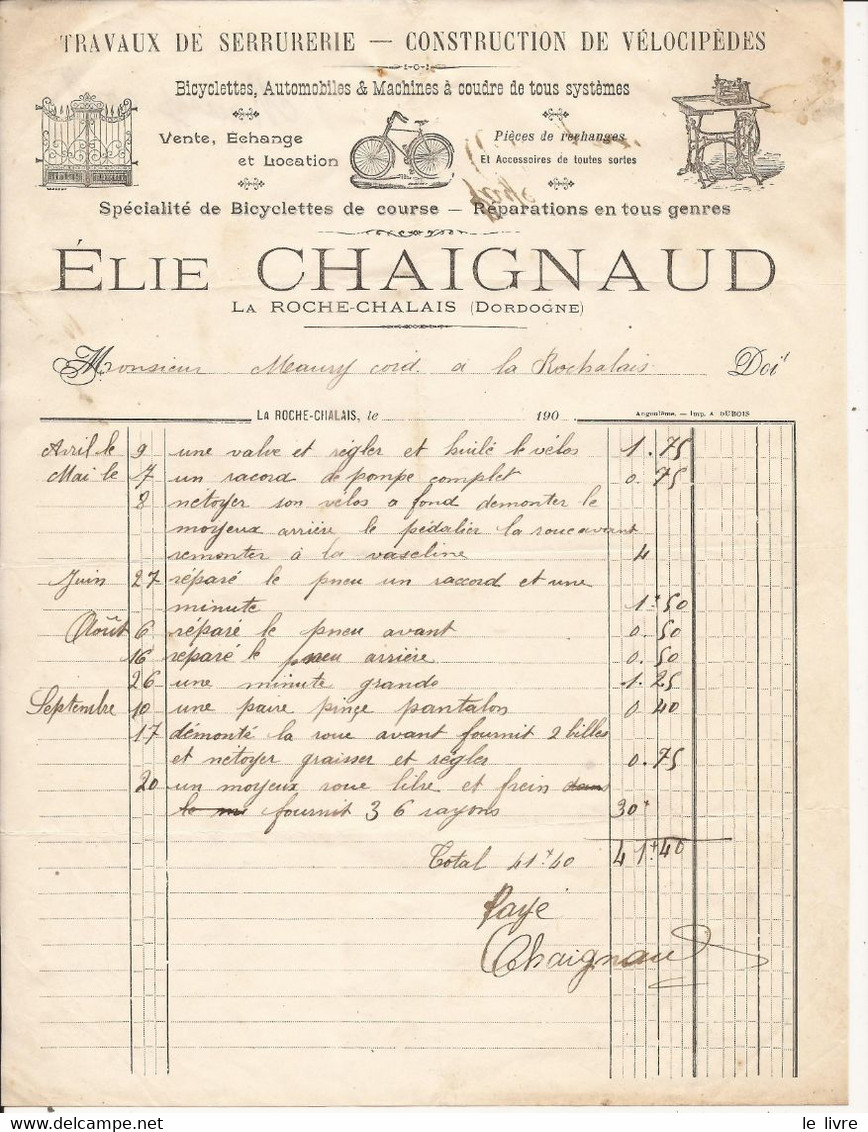 TRAVAUX DE SERRURERIE — CONSTRUCTION DE VÉLOCIPÈDES
Bicyclettes, Automobiles & Machines à coudre de tous systèmes
Vente, Échange
et Location
Pièces de rechanges
Et Accessoires de toutes sortes
Spécialité de Bicyclettes de course — Réparations en tous genres
ÉLIE CHAIGNAUD
LA ROCHE-CHALAIS (DORDOGNE)
Monsieur Maury cord. a la Rochalais Doit
LA ROCHE-CHALAIS, le 190 Angoulême. — Imp. A. DUBOIS
Avril le 9 une valve et régler et huilé le vélos 1.75
Mai le 7 un racord de pompe complet 0.75
8 netoyer son vélos a fond demonter le
moyeux arrière le pédalier la roue avant
remonter à la vaseline 4
Juin 27 réparé le pneu un raccord et une
minute 1.50
Août 6 réparé le pneu avant 0.50
16 réparé le pneu arrière 0.50
26 une minute grande 1.25
Septembre 10 une paire pinçe pantalon 0 40
17 démonté la roue avant fournit 2 billes
et netoyer graisser et régler 0.75
20 un moyeux roue libre et frein dans
le fournit 36 rayons 30
Total 41+40 41+40
Payé
Chaignaud
le livre